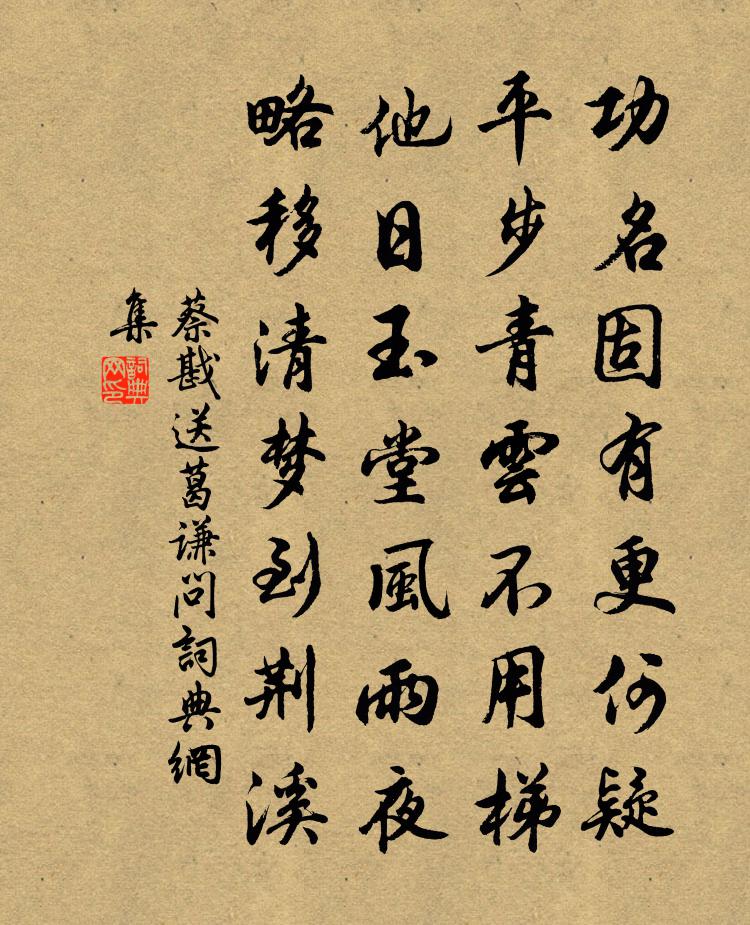 功名固有更何疑
平步青雲不用梯
他日玉堂風雨夜
略移清梦到荆溪
蔡戡送葛谦問詞典網
集
詞典
网印